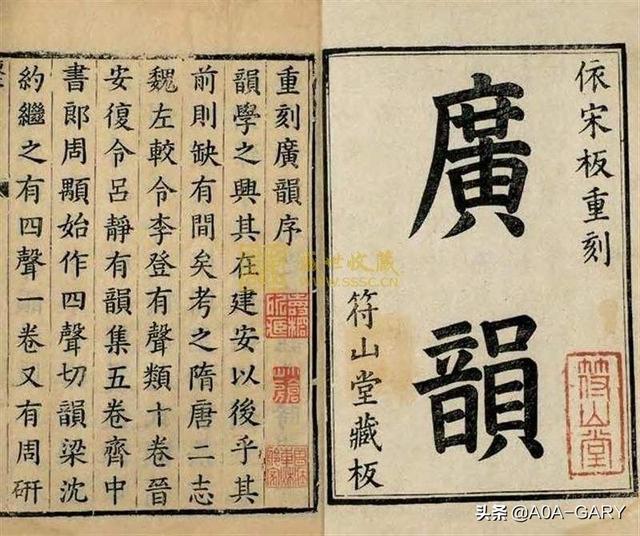 依宋板重刻
廣韻
符山堂藏板
符山堂
重刻廣韻序
韻學之興其在建安以後乎其
前則缺有間矣考之隋唐二志
魏左較令李登有聲類十卷晉
安復令呂靜有韻集五卷齊中
書郎周顒始作四聲切韻梁沈
約繼之有四聲一卷又有周研
盛世收藏
WWW.SSSC.CN
头条 @AOA-GARY